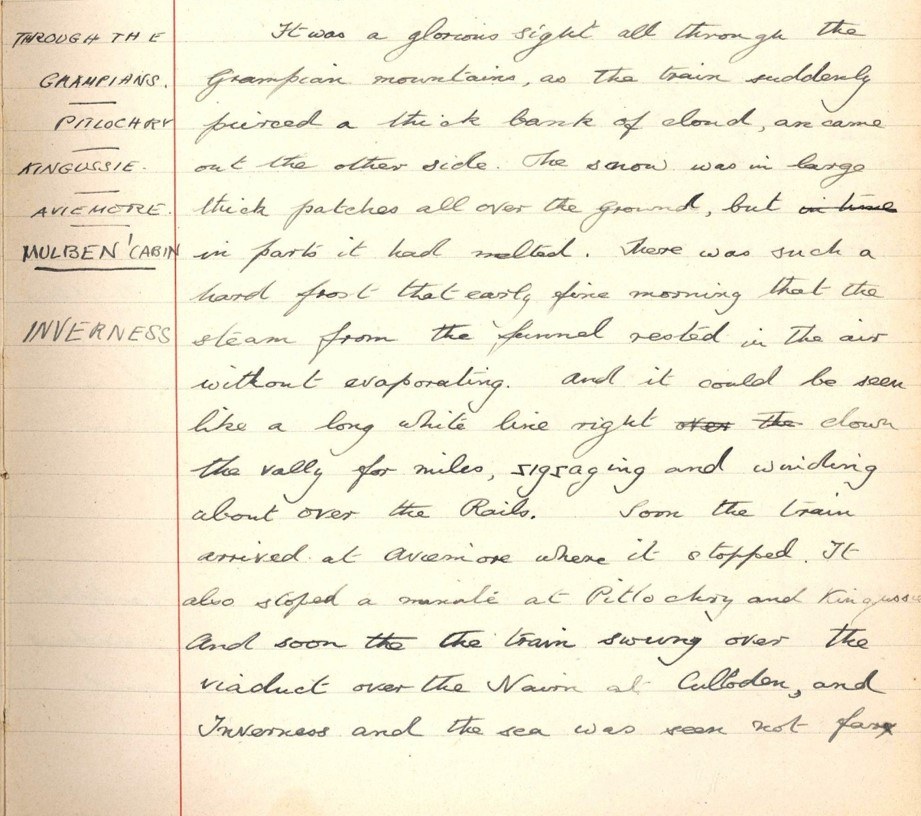 THROUGH THE
GRAMPIANS.
PITLOCHRY
KINGUSSIE.
AVIEMORE.
MULBEN' CABIN
INVERNESS
It was a glorious sight all through the
Grampian mountains, as the train suddenly
pierced a thick bank of cloud, an came
out the other side. The snow was in large
thick patches all over the ground, but in time
in parts it had melted. There was such a
hard frost that early fine morning that the
steam from the funnel rested in the air
without evaporating. And it could be seen
like a long white line right over the down
the vally for miles, zigzaging and winding
about over the Rails. Soon the train
arrived at Aviemore where it stopped. It
also stoped a minute at Pitlochry and Kingussie
And soon the the train swung over the
viaduct over the Nairn at Culloden, and
Inverness and the sea was seen not far